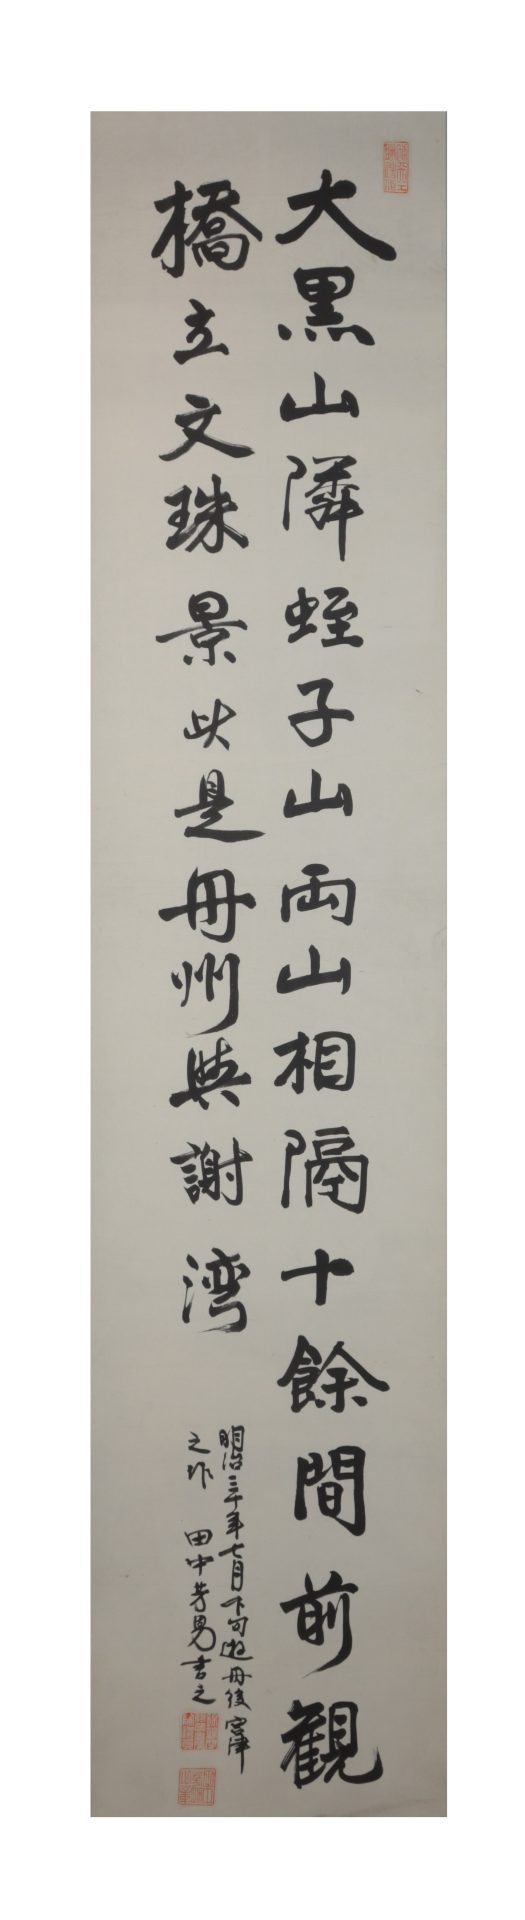 大黒山隣蛭子山両山相隔十餘間前観
橋立文珠景此是丹州與謝湾
明治三十年七月下旬遊丹後宮津
之作 田中芳男書之